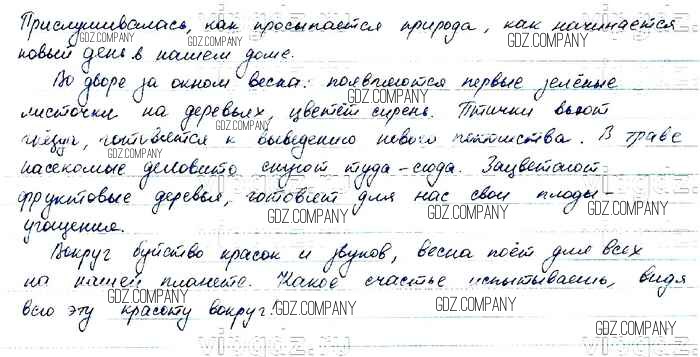 Прислушивалась, как просыпается природа, как начинается
новый день в нашем доме.
Во дворе за окном весна: появляются первые зелёные
листочки на деревьях, цветёт сирень. Птички вьют
гнёзда, готовятся к выведению нового потомства. В траве
насекомые деловито снуют туда-сюда. Зацветают
фруктовые деревья, готовят для нас свои плоды
угощения.
Вокруг буйство красок и звуков, весна поёт для всех
на нашей планете. Какое счастье испытываешь, видя
всю эту красоту вокруг!
GDZ.COMPANY
GDZ.COMPANY
GDZ.COMPANY
GDZ.COMPANY
GDZ.COMPANY
GDZ.COMPANY
GDZ.COMPANY
GDZ.COMPANY
GDZ.COMPANY
GDZ.COMPANY
GDZ.COMPANY
GDZ.COMPANY
GDZ.COMPANY
GDZ.COMPANY